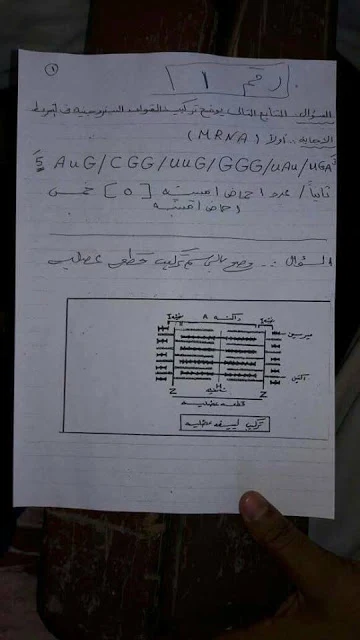 ①
رقم ١
السؤال: التتابع التالي يوضح تركيب القواعد النيتروجينية في شريط
الإجابة:- أولاً (MRNA)
5 AUG/CGG/UUG/GGG/UAU/UGA 3
ثانياً / عدد احماض امينيه [٥] خمس
احماض امينيه
السؤال :- وضح بالرسم تركيب قطعه عضليه
داكنه A
ميوسين
اكتين
H
Z Z
قطعه عضليه
تركيب ليفه عضليه